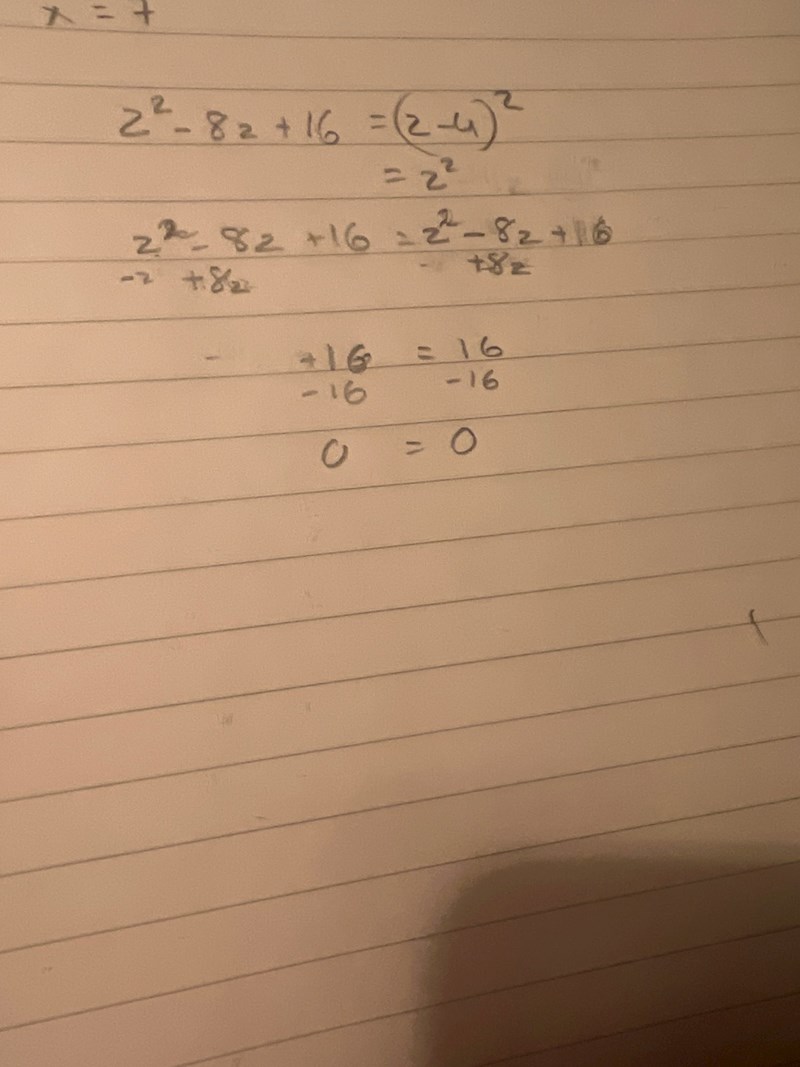 x = 7
z² - 8z + 16 = (z-4)²
= z²
z² - 8z + 16 = z² - 8z + 16
-z +8z +8z
+16 = 16
-16 -16
0 = 0